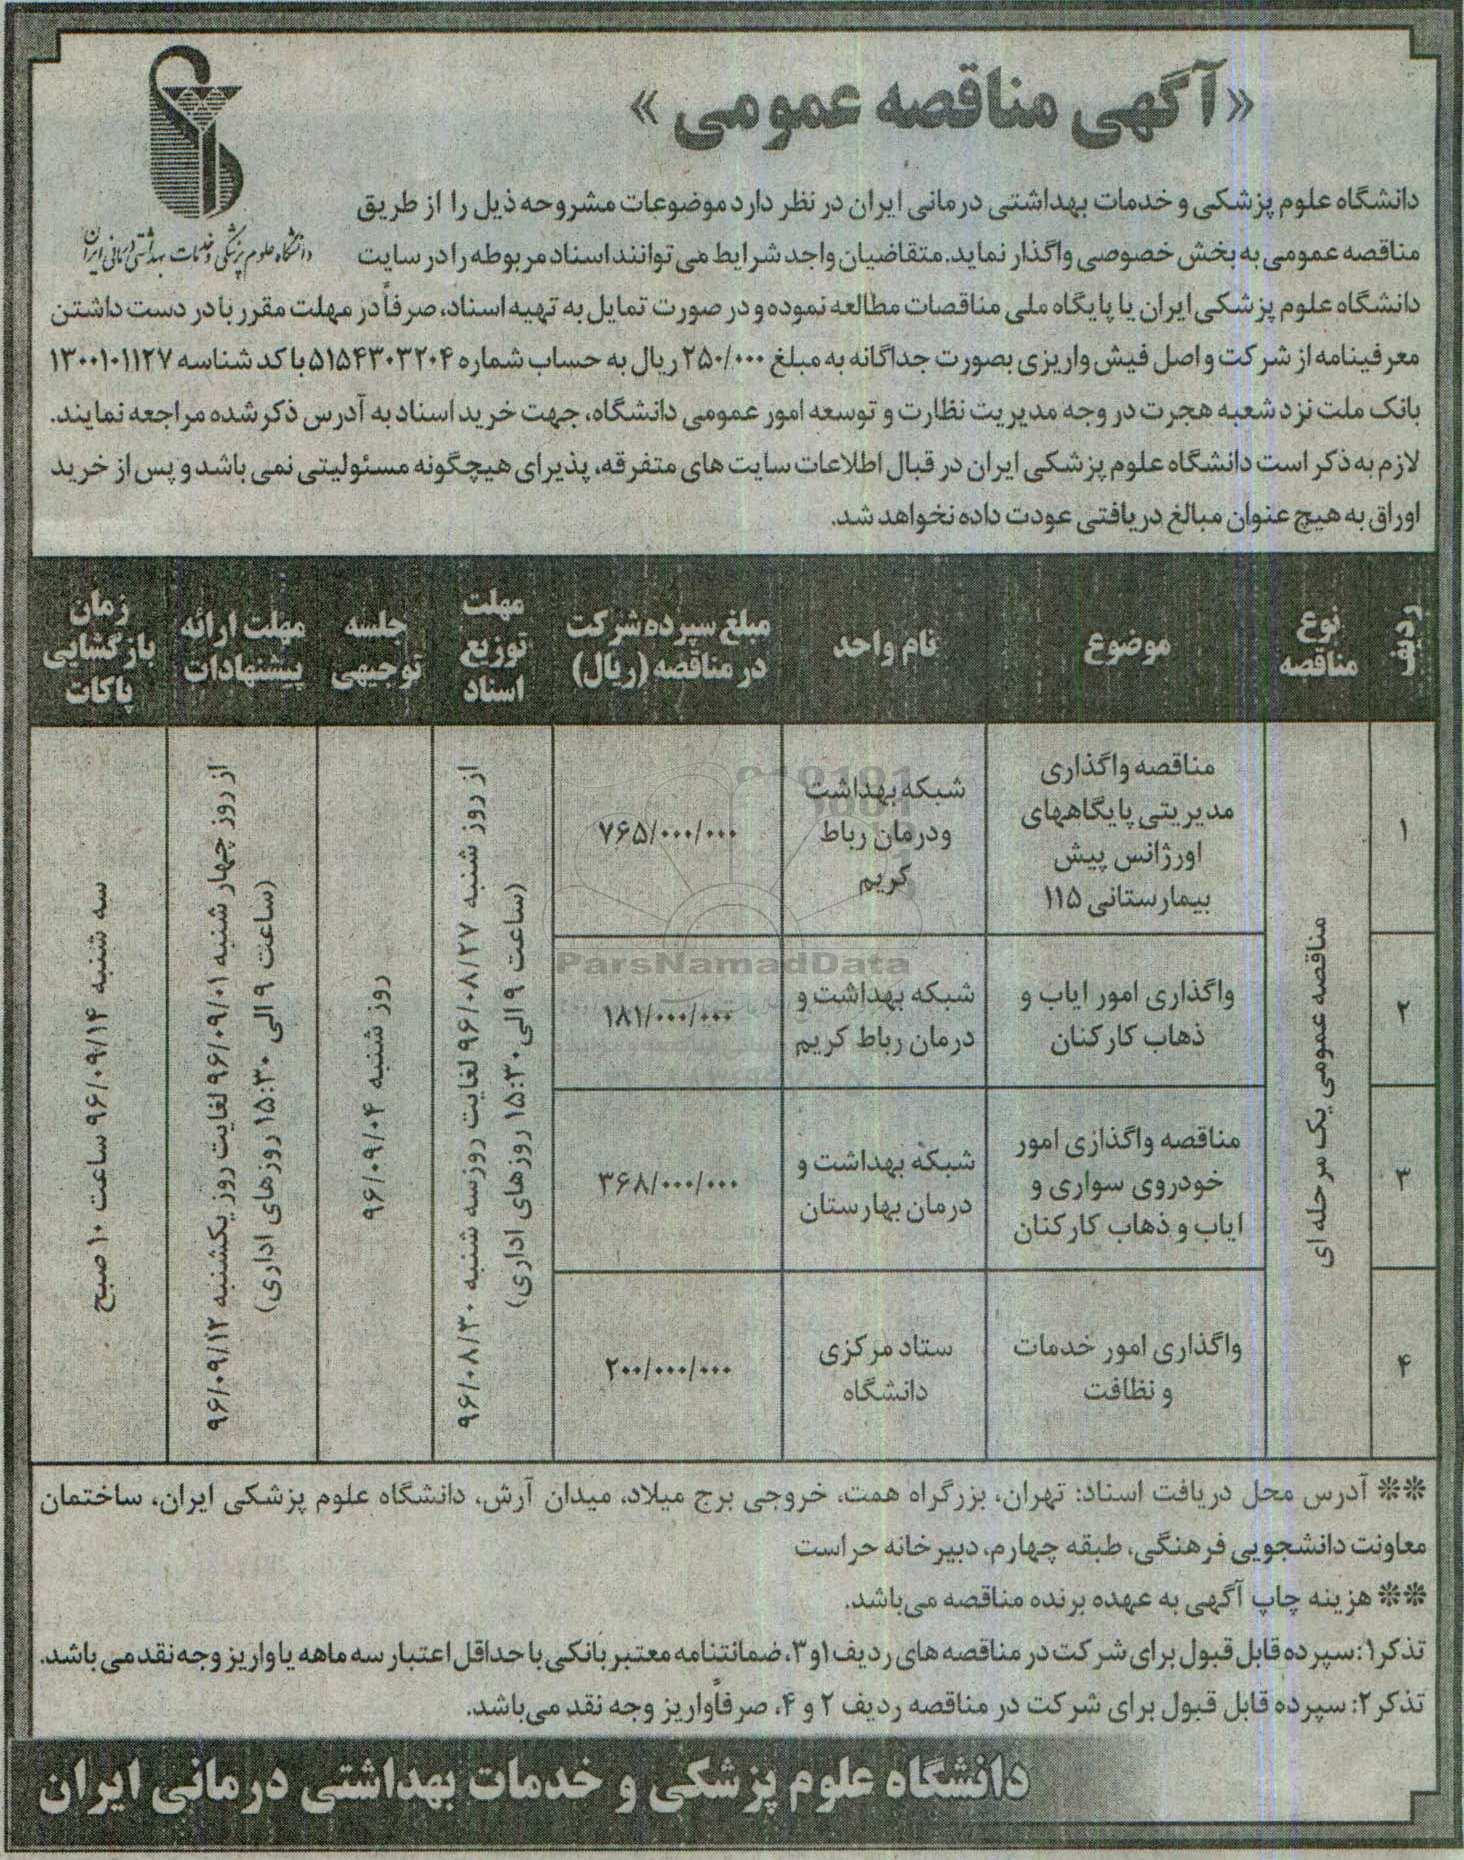 «آگهی مناقصه عمومی»
دانشگاه علوم پزشکی و خدمات بهداشتی درمانی ایران
دانشگاه علوم پزشکی و خدمات بهداشتی درمانی ایران در نظر دارد موضوعات مشروحه ذیل را از طریق
مناقصه عمومی به بخش خصوصی واگذار نماید. متقاضیان واجد شرایط می توانند اسناد مربوطه را در سایت
دانشگاه علوم پزشکی ایران یا پایگاه ملی مناقصات مطالعه نموده و در صورت تمایل به تهیه اسناد، صرفاً در مهلت مقرر با در دست داشتن
معرفینامه از شرکت و اصل فیش واریزی بصورت جداگانه به مبلغ ۲۵۰/۰۰۰ ریال به حساب شماره ۵۱۵۴۳۰۳۲۰۴ با کد شناسه ۱۳۰۰۱۰۱۱۲۷
بانک ملت نزد شعبه هجرت در وجه مدیریت نظارت و توسعه امور عمومی دانشگاه، جهت خرید اسناد به آدرس ذکر شده مراجعه نمایند.
لازم به ذکر است دانشگاه علوم پزشکی ایران در قبال اطلاعات سایت های متفرقه، پذیرای هیچگونه مسئولیتی نمی باشد و پس از خرید
اوراق به هیچ عنوان مبالغ دریافتی عودت داده نخواهد شد.
ردیف
نوع
مناقصه
موضوع
نام واحد
مبلغ سپرده شرکت
در مناقصه (ریال)
مهلت
توزیع
اسناد
جلسه
توجیهی
مهلت ارائه
پیشنهادات
زمان
بازگشایی
پاکات
۱
مناقصه عمومی یک مرحله ای
مناقصه واگذاری
مدیریتی پایگاههای
اورژانس پیش
بیمارستانی ۱۱۵
شبکه بهداشت
ودرمان رباط
کریم
۷۶۵/۰۰۰/۰۰۰
از روز شنبه ۹۶/۰۸/۲۷ لغایت روز سه شنبه ۹۶/۰۸/۳۰
(ساعت ۹ الی ۱۵:۳۰ روزهای اداری)
روز شنبه ۹۶/۰۹/۰۴
از روز چهار شنبه ۹۶/۰۹/۰۱ لغایت روز یکشنبه ۹۶/۰۹/۱۲
(ساعت ۹ الی ۱۵:۳۰ روزهای اداری)
سه شنبه ۹۶/۰۹/۱۴ ساعت ۱۰ صبح
۲
واگذاری امور ایاب و
ذهاب کارکنان
شبکه بهداشت و
درمان رباط کریم
۱۸۱/۰۰۰/۰۰۰
۳
مناقصه واگذاری امور
خودروی سواری و
ایاب و ذهاب کارکنان
شبکه بهداشت و
درمان بهارستان
۳۶۸/۰۰۰/۰۰۰
۴
واگذاری امور خدمات
و نظافت
ستاد مرکزی
دانشگاه
۲۰۰/۰۰۰/۰۰۰
ParsNamadData
** آدرس محل دریافت اسناد: تهران، بزرگراه همت، خروجی برج میلاد، میدان آرش، دانشگاه علوم پزشکی ایران، ساختمان
معاونت دانشجویی فرهنگی، طبقه چهارم، دبیرخانه حراست
** هزینه چاپ آگهی به عهده برنده مناقصه می‌باشد.
تذکر۱: سپرده قابل قبول برای شرکت در مناقصه های ردیف ۱و۳، ضمانتنامه معتبر بانکی با حداقل اعتبار سه ماهه یا واریز وجه نقد می باشد.
تذکر۲: سپرده قابل قبول برای شرکت در مناقصه ردیف ۲ و ۴، صرفاً واریز وجه نقد می‌باشد.
دانشگاه علوم پزشکی و خدمات بهداشتی درمانی ایران